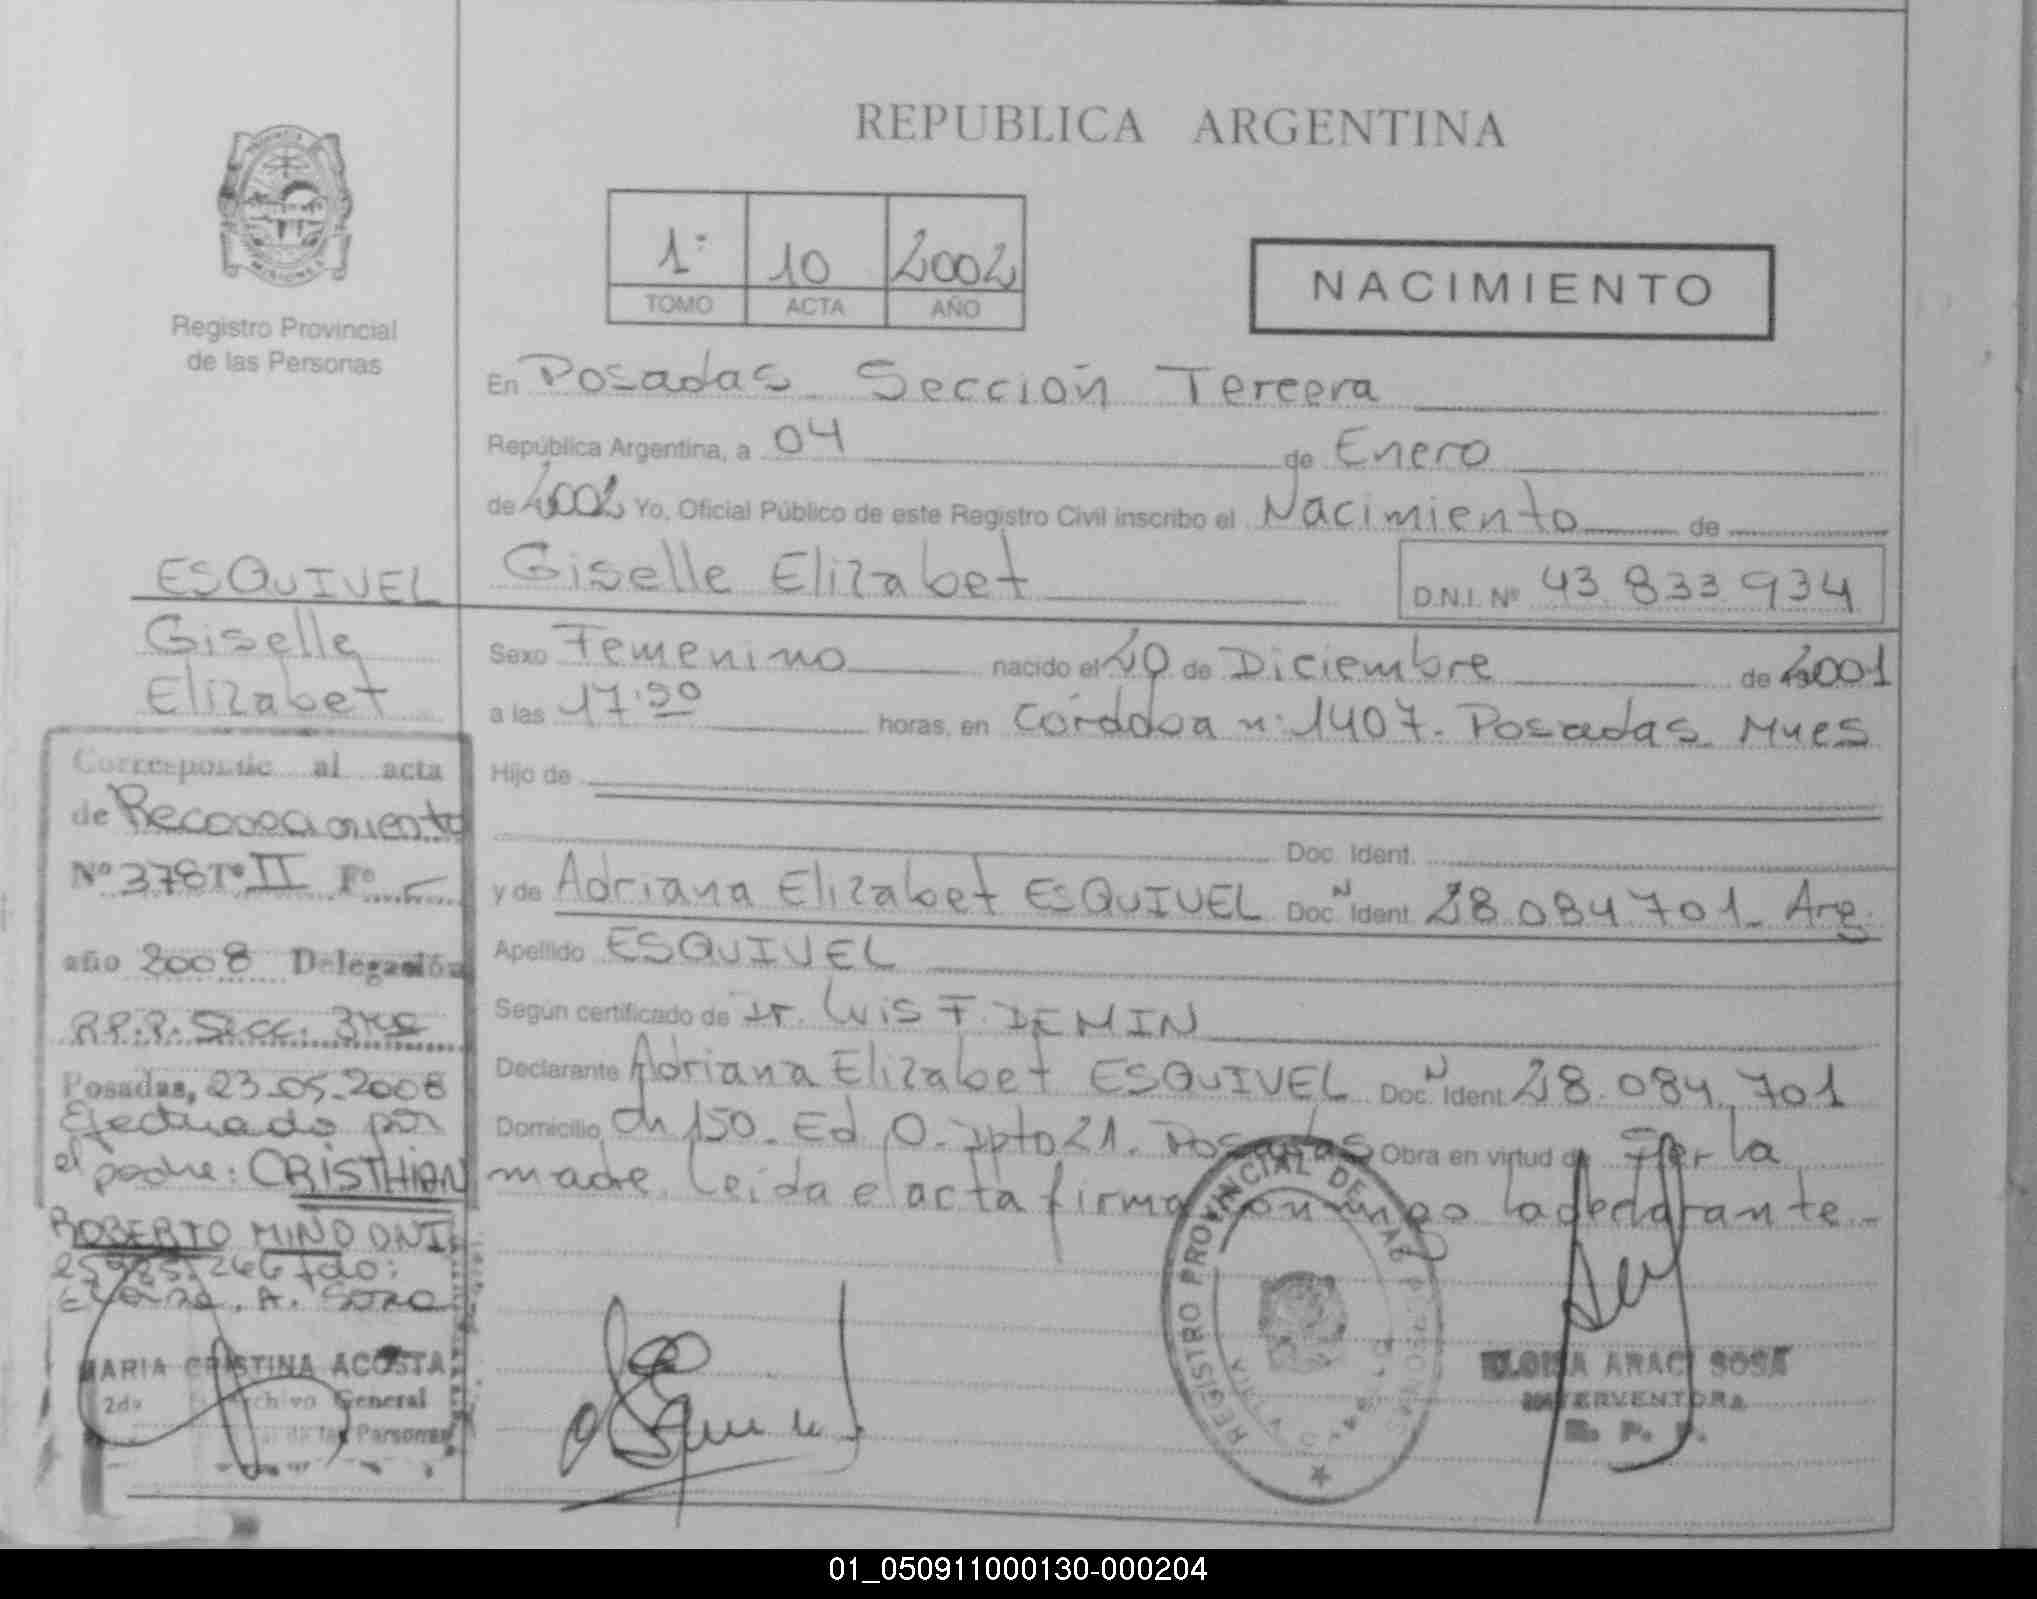 REPUBLICA ARGENTINA
PROVINCIA
MISIONES
Registro Provincial
de las Personas
1º 10 2002
TOMO ACTA AÑO
NACIMIENTO
En Posadas Sección Tercera
República Argentina, a 04 de Enero
de 2002 Yo, Oficial Público de este Registro Civil inscribo el Nacimiento de
Giselle Elizabet
D.N.I. Nº 43 833 934
Sexo Femenino nacido el 20 de Diciembre de 2001
a las 17:50 horas, en Córdoba nº 1407. Posadas Mnes
Hijo de
Doc. Ident.
y de Adriana Elizabet ESQUIVEL Doc. N Ident. 28.084.701. Arg.
Apellido ESQUIVEL
Según certificado de Dr. Luis F. DEMIN
Declarante Adriana Elizabet ESQUIVEL Doc. N Ident. 28.084.701
Domicilio Ch 150. Ed O. Dpto 21. Posadas Obra en virtud de Ser la
madre. Leída el acta firma conmigo la declarante.
ESQUIVEL
Giselle
Elizabet
Corresponde al acta
de Reconocimiento
Nº 378 Tº II Fº
año 2008 Delegación
R.P.P. Secc. 3ra
Posadas, 23.05.2008
Efectuado por
el padre: CRISTHIAN
ROBERTO MINDONI
fdo:
MARIA CRISTINA ACOSTA
Archivo General
de las Personas
REGISTRO PROVINCIAL DE LAS PERSONAS
ARACI SOSA
INTERVENTORA
R. P. P.
01_050911000130-000204